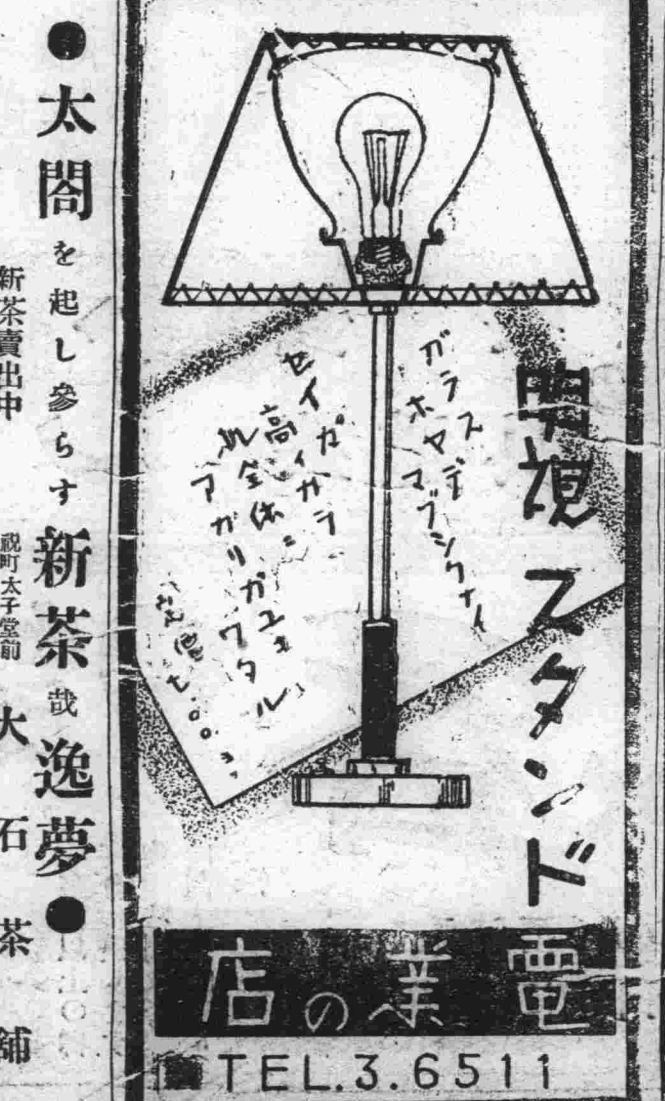 明視スタンド
ガラス
ホヤデ
マブシクナイ
セイガ
高イカラ
机全体ニ
アカリガユキワタル
定価七.〇〇ヨリ
電業の店
TEL.3.6511
●太閤を起し參らす新茶哉 逸夢●
新茶賣出中
祝町太子堂前
大石茶舖